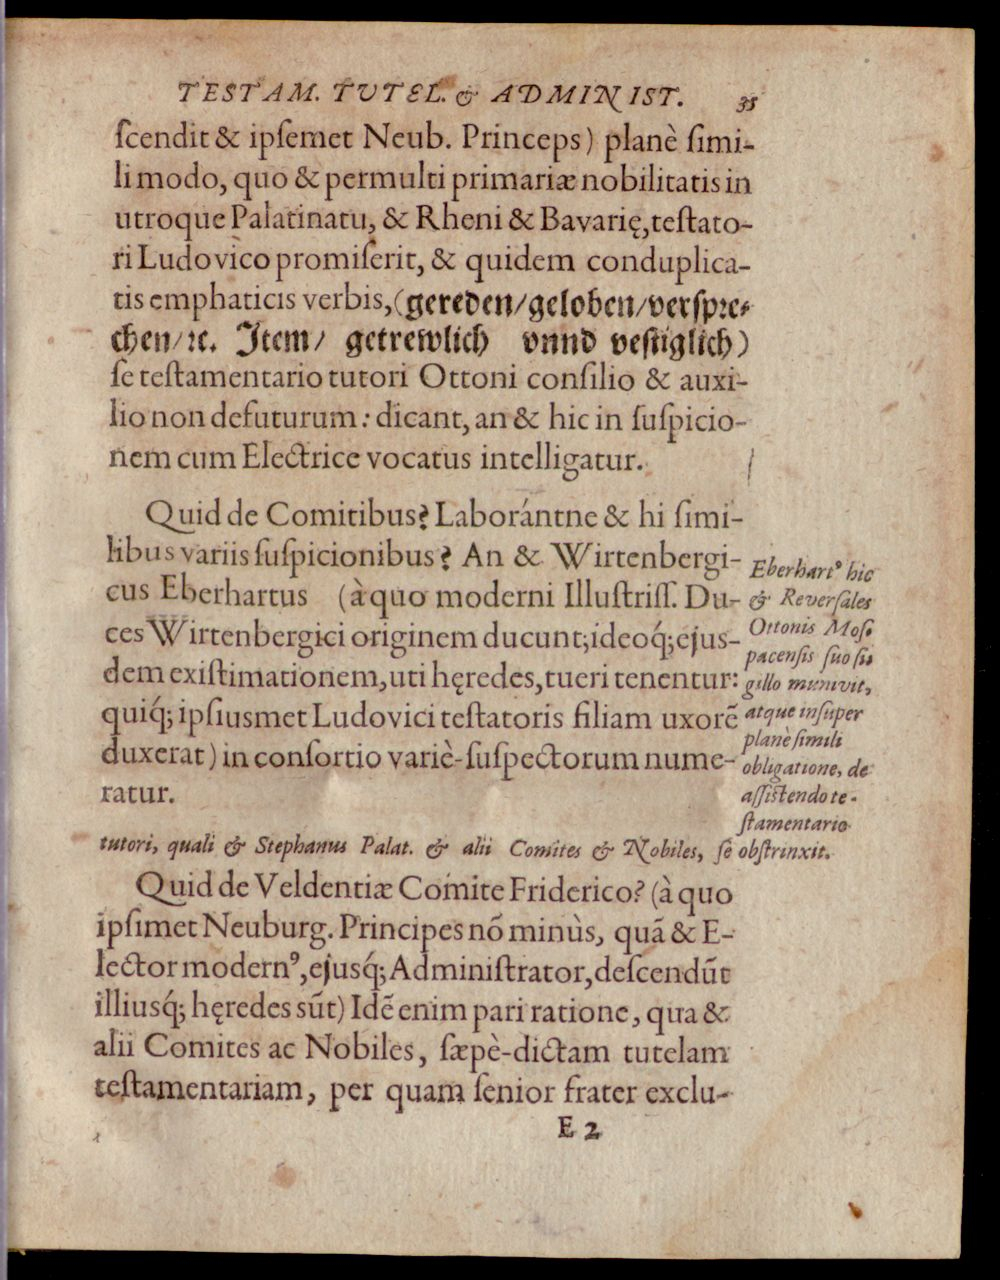 TESTAM. TVTEL. & ADMINIST. 35
ſcendit & ipſemet Neub. Princeps) planè ſimi-
li modo, quo & permulti primariæ nobilitatis in
utroque Palatinatu, & Rheni & Bavarię, teſtato-
ri Ludovico promiſerit, & quidem conduplica-
tis emphaticis verbis, (gereden/geloben/verſpre-
chen/ꝛc. Item/ getrewlich vnnd veſtiglich)
ſe teſtamentario tutori Ottoni conſilio & auxi-
lio non defuturum: dicant, an & hic in ſuſpicio-
nem cum Electrice vocatus intelligatur.
Quid de Comitibus? Laborántne & hi ſimi-
libus variis ſuſpicionibus? An & Wirtenbergi-
cus Eberhartus (à quo moderni Illuſtriſſ. Du-
ces Wirtenbergici originem ducunt; ideoq́; ejus-
dem exiſtimationem, uti hęredes, tueri tenentur:
quiq́; ipſiusmet Ludovici teſtatoris filiam uxorẽ
duxerat) in conſortio variè-ſuſpectorum nume-
ratur.
Eberhartꝰ hic
& Reverſales
Ottonis Moſ-
pacenſis ſuo ſi-
gillo munivit,
atque inſuper
planè ſimili
obligatione, de
aſſiſtendo te-
ſtamentario
tutori, quali & Stephanus Palat. & alii Comites & Nobiles, ſe obſtrinxit.
Quid de Veldentiæ Comite Friderico? (à quo
ipſimet Neuburg. Principes nõ minùs, quã & E-
lector modernꝰ, ejusq́; Adminiſtrator, deſcendũt
illiusq́; hęredes sũt) Idẽ enim pari ratione, qua &
alii Comites ac Nobiles, ſæpè-dictam tutelam
teſtamentariam, per quam ſenior frater exclu-
E 2